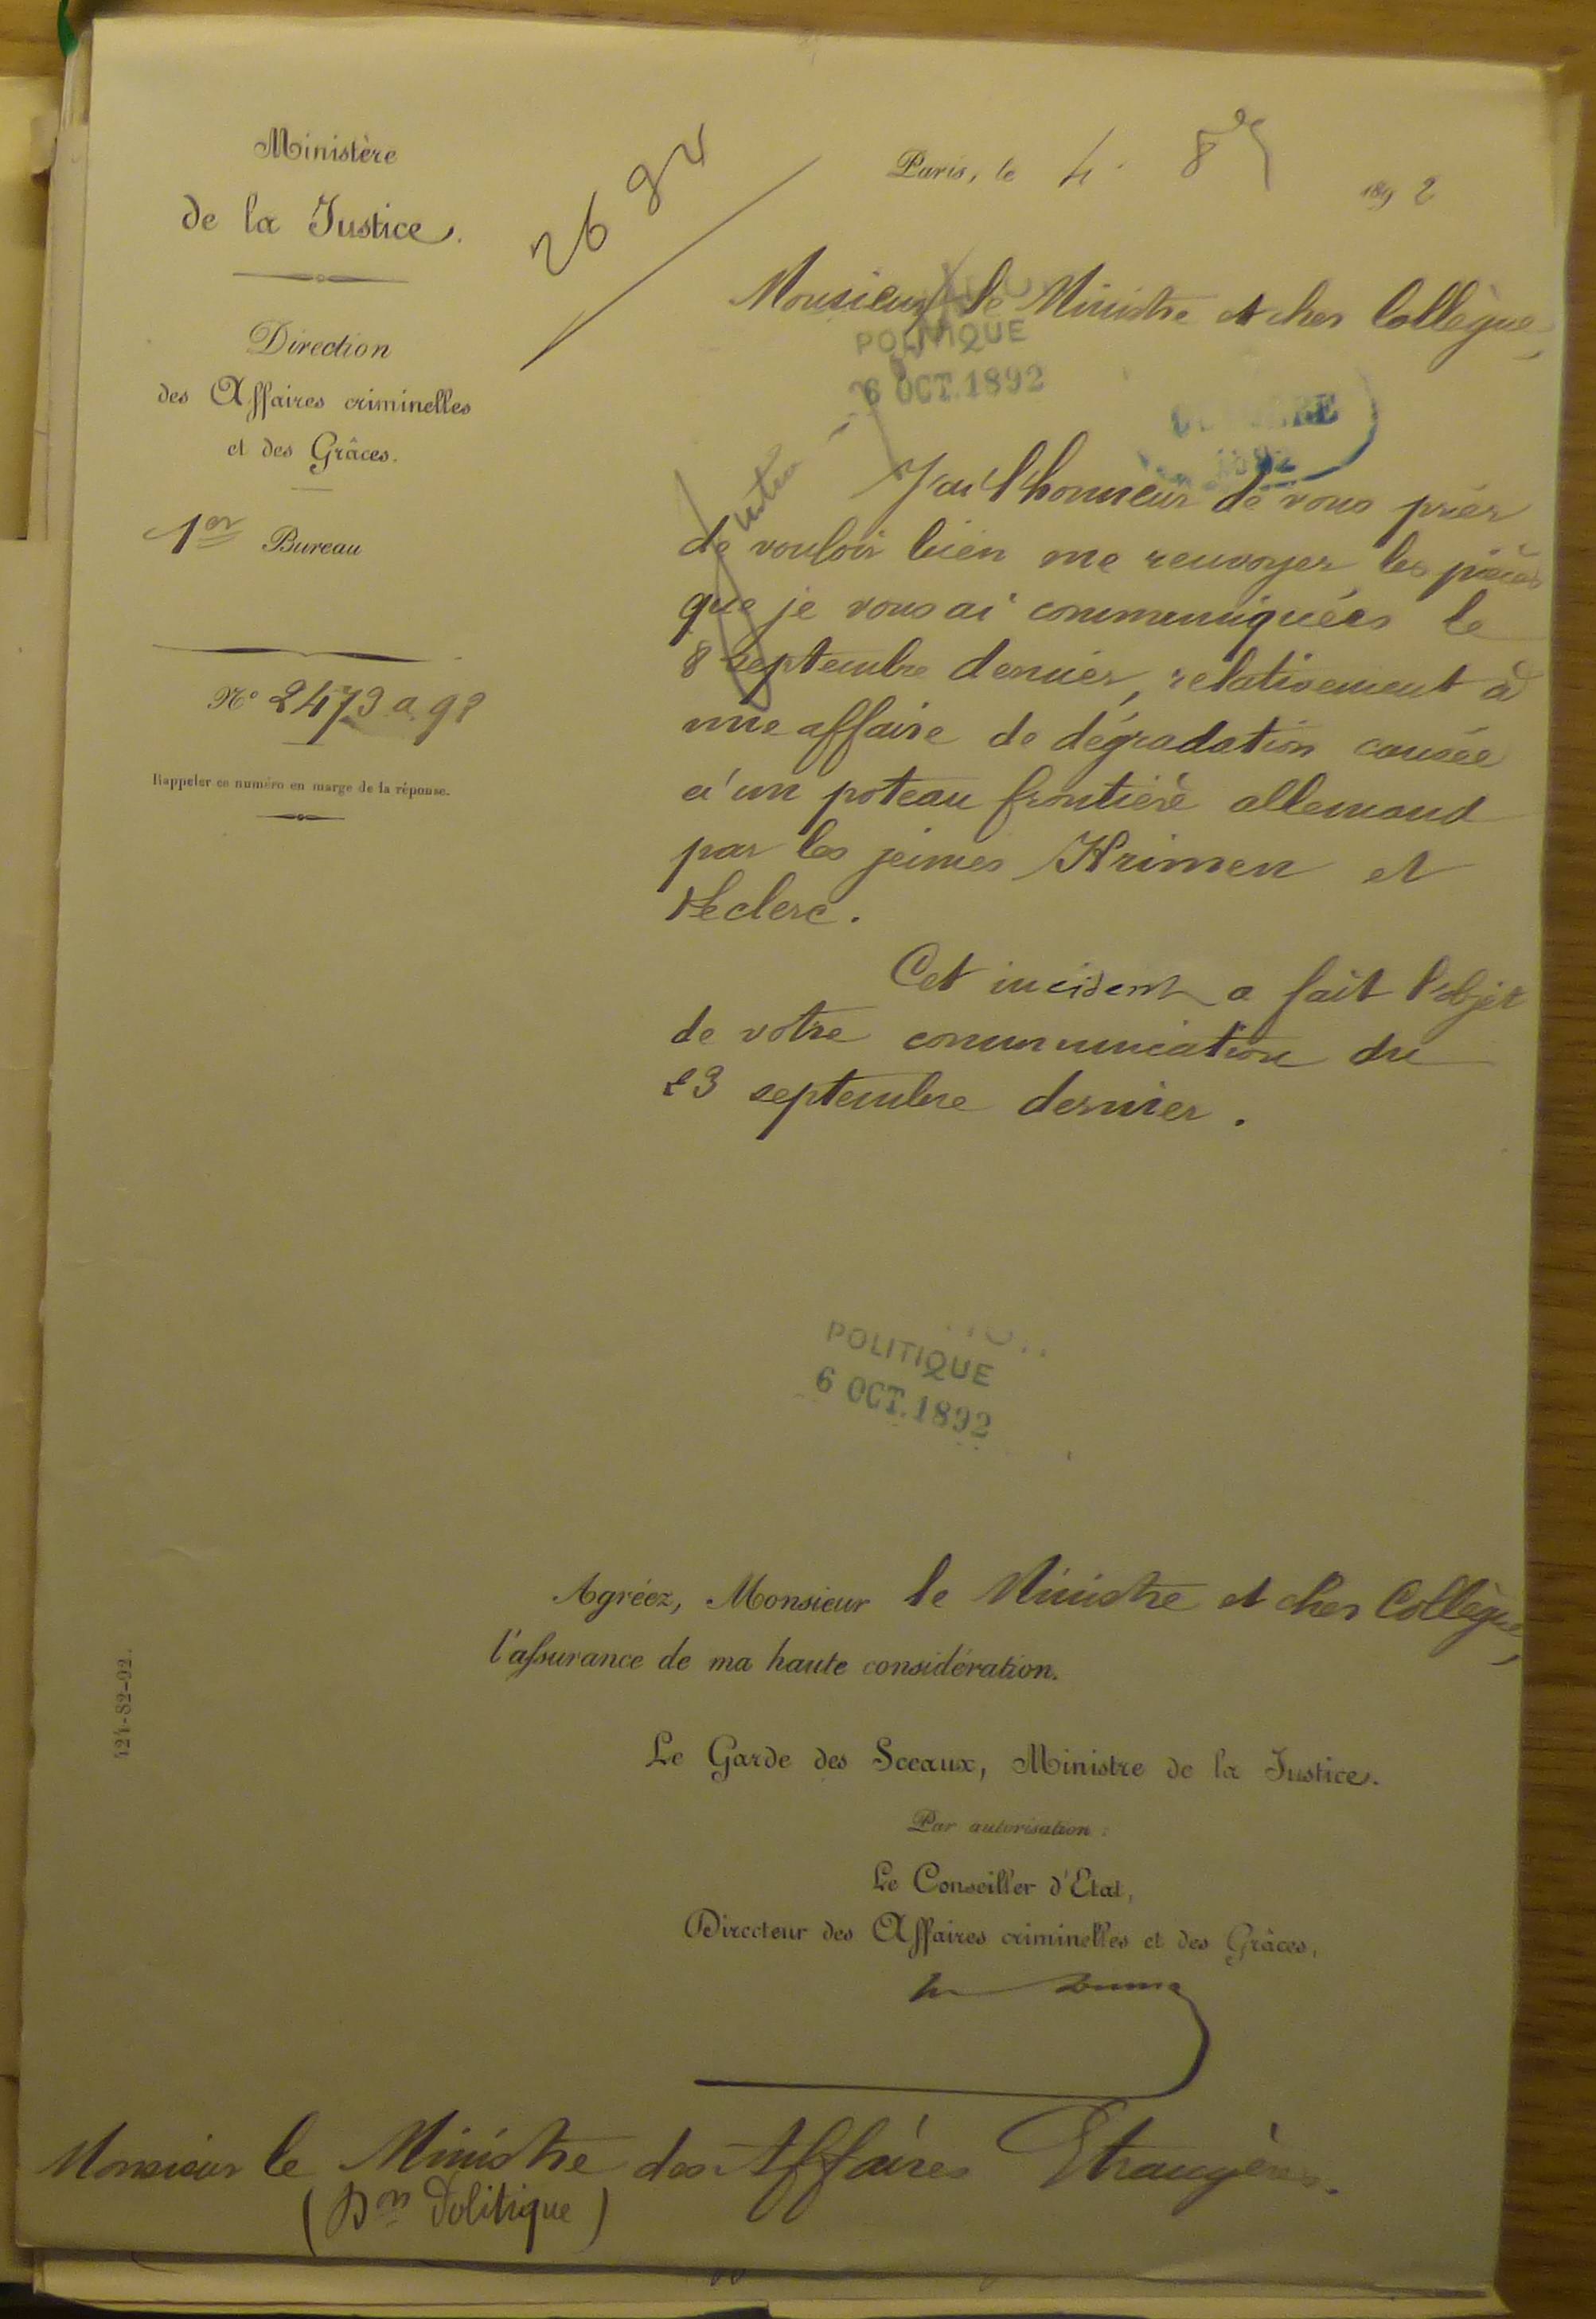 Ministère
de la Justice.
Direction
des Affaires criminelles
et des Grâces.
1er Bureau
No 2473 a 92
Rappeler ce numéro en marge de la réponse.
Paris, le 4 8e 1892
Monsieur le Ministre et cher Collègue,
POLITIQUE
6 OCT. 1892
J'ai l'honneur de vous prier
de vouloir bien me renvoyer les pièces
que je vous ai communiquées le
8 septembre dernier, relativement à
une affaire de dégradation causée
à un poteau frontière allemand
par les jeunes et
Leclerc.
Cet incident a fait l'objet
de votre communication du
23 septembre dernier.
POLITIQUE
6 OCT. 1892
Agréez, Monsieur le Ministre et cher Collègue,
l'assurance de ma haute considération.
Le Garde des Sceaux, Ministre de la Justice.
Par autorisation :
Le Conseiller d'Etat,
Directeur des Affaires criminelles et des Grâces,
124-82-92.
Monsieur le Ministre des Affaires Etrangères.
(Don Politique)